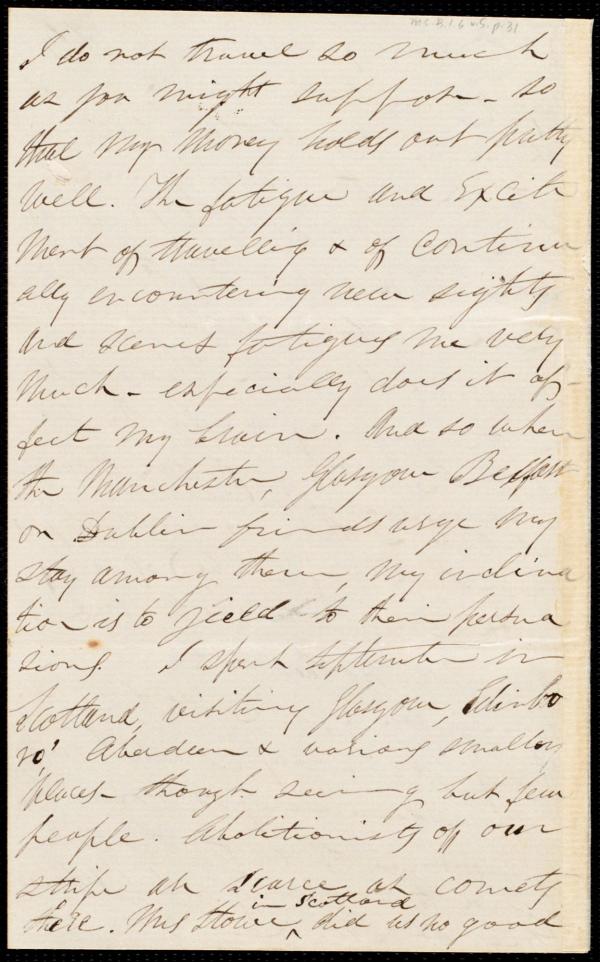 Ms. B. 1. 6 v. 5. p. 31
I do not travel so much
as you might suppose - so
that my money holds out pretty
well. The fatigue and Excite
ment of travelling & of continu
ally encountering new sights
and scenes fatigues me very
much - especially does it af-
fect my brain. And so when
the Manchester, Glasgow Belfast
or Dublin friends urge my
stay among them, my inclina
tion is to yield to their persua
sions. I spent September in
Scotland, visiting Glasgow, Edinbo
ro', Aberdeen & various smaller
places - though seeing but few
people. Abolitionists of our
stripe are scarce as comets
there. Mrs Stowe, in Scotland did us no good